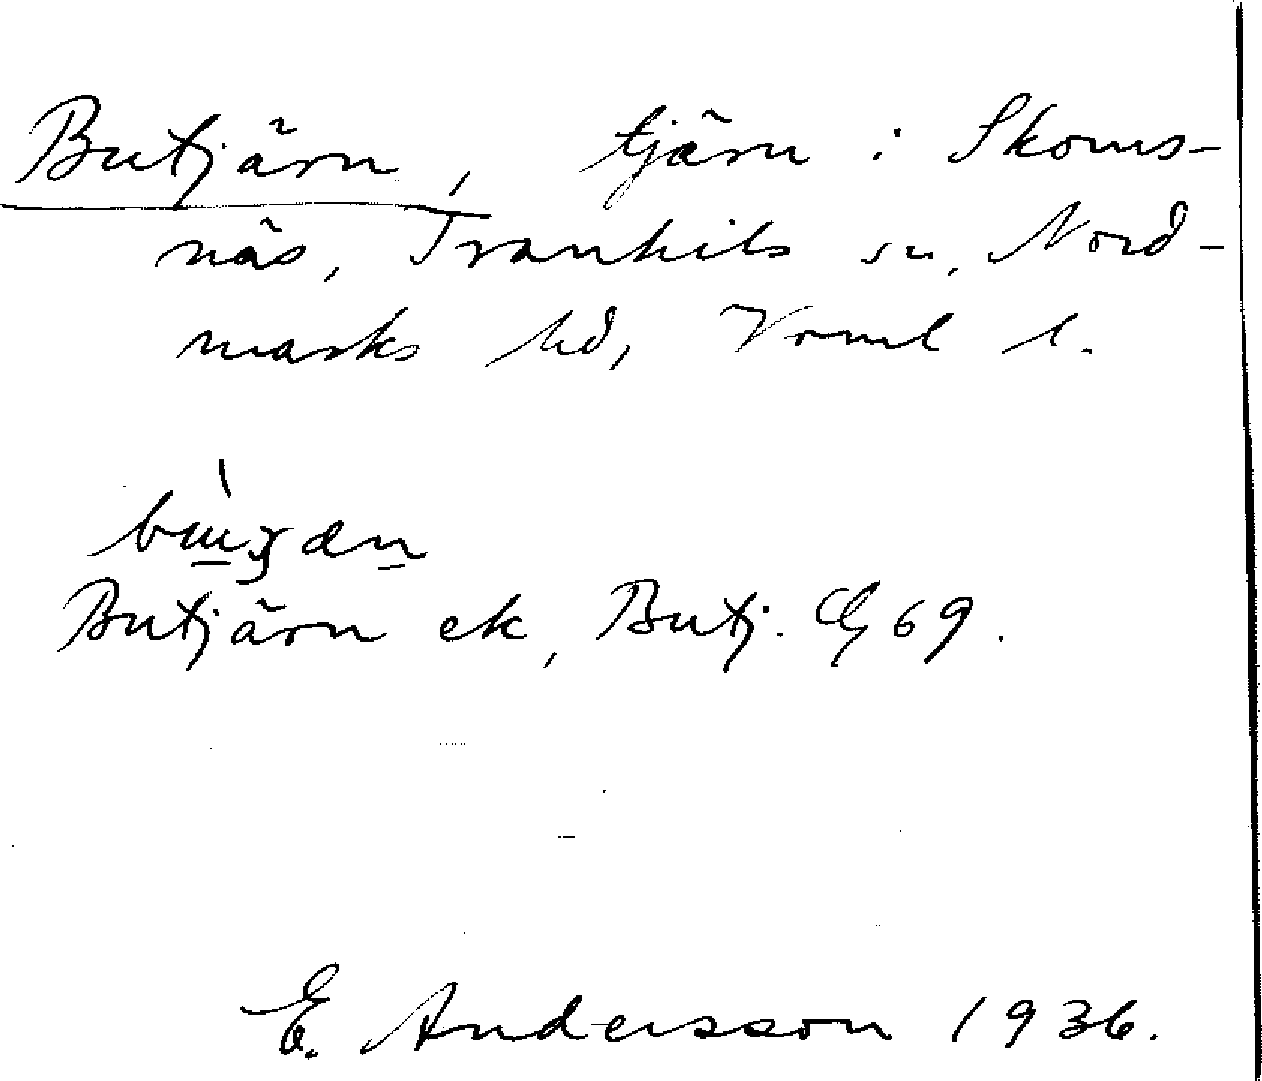 Butjärn, tjärn i Skoms-
näs, Trankils sn, Nord-
marks hd, Vrml l.
Butjärn ek, Butj. 69.
E. Andersson 1936.